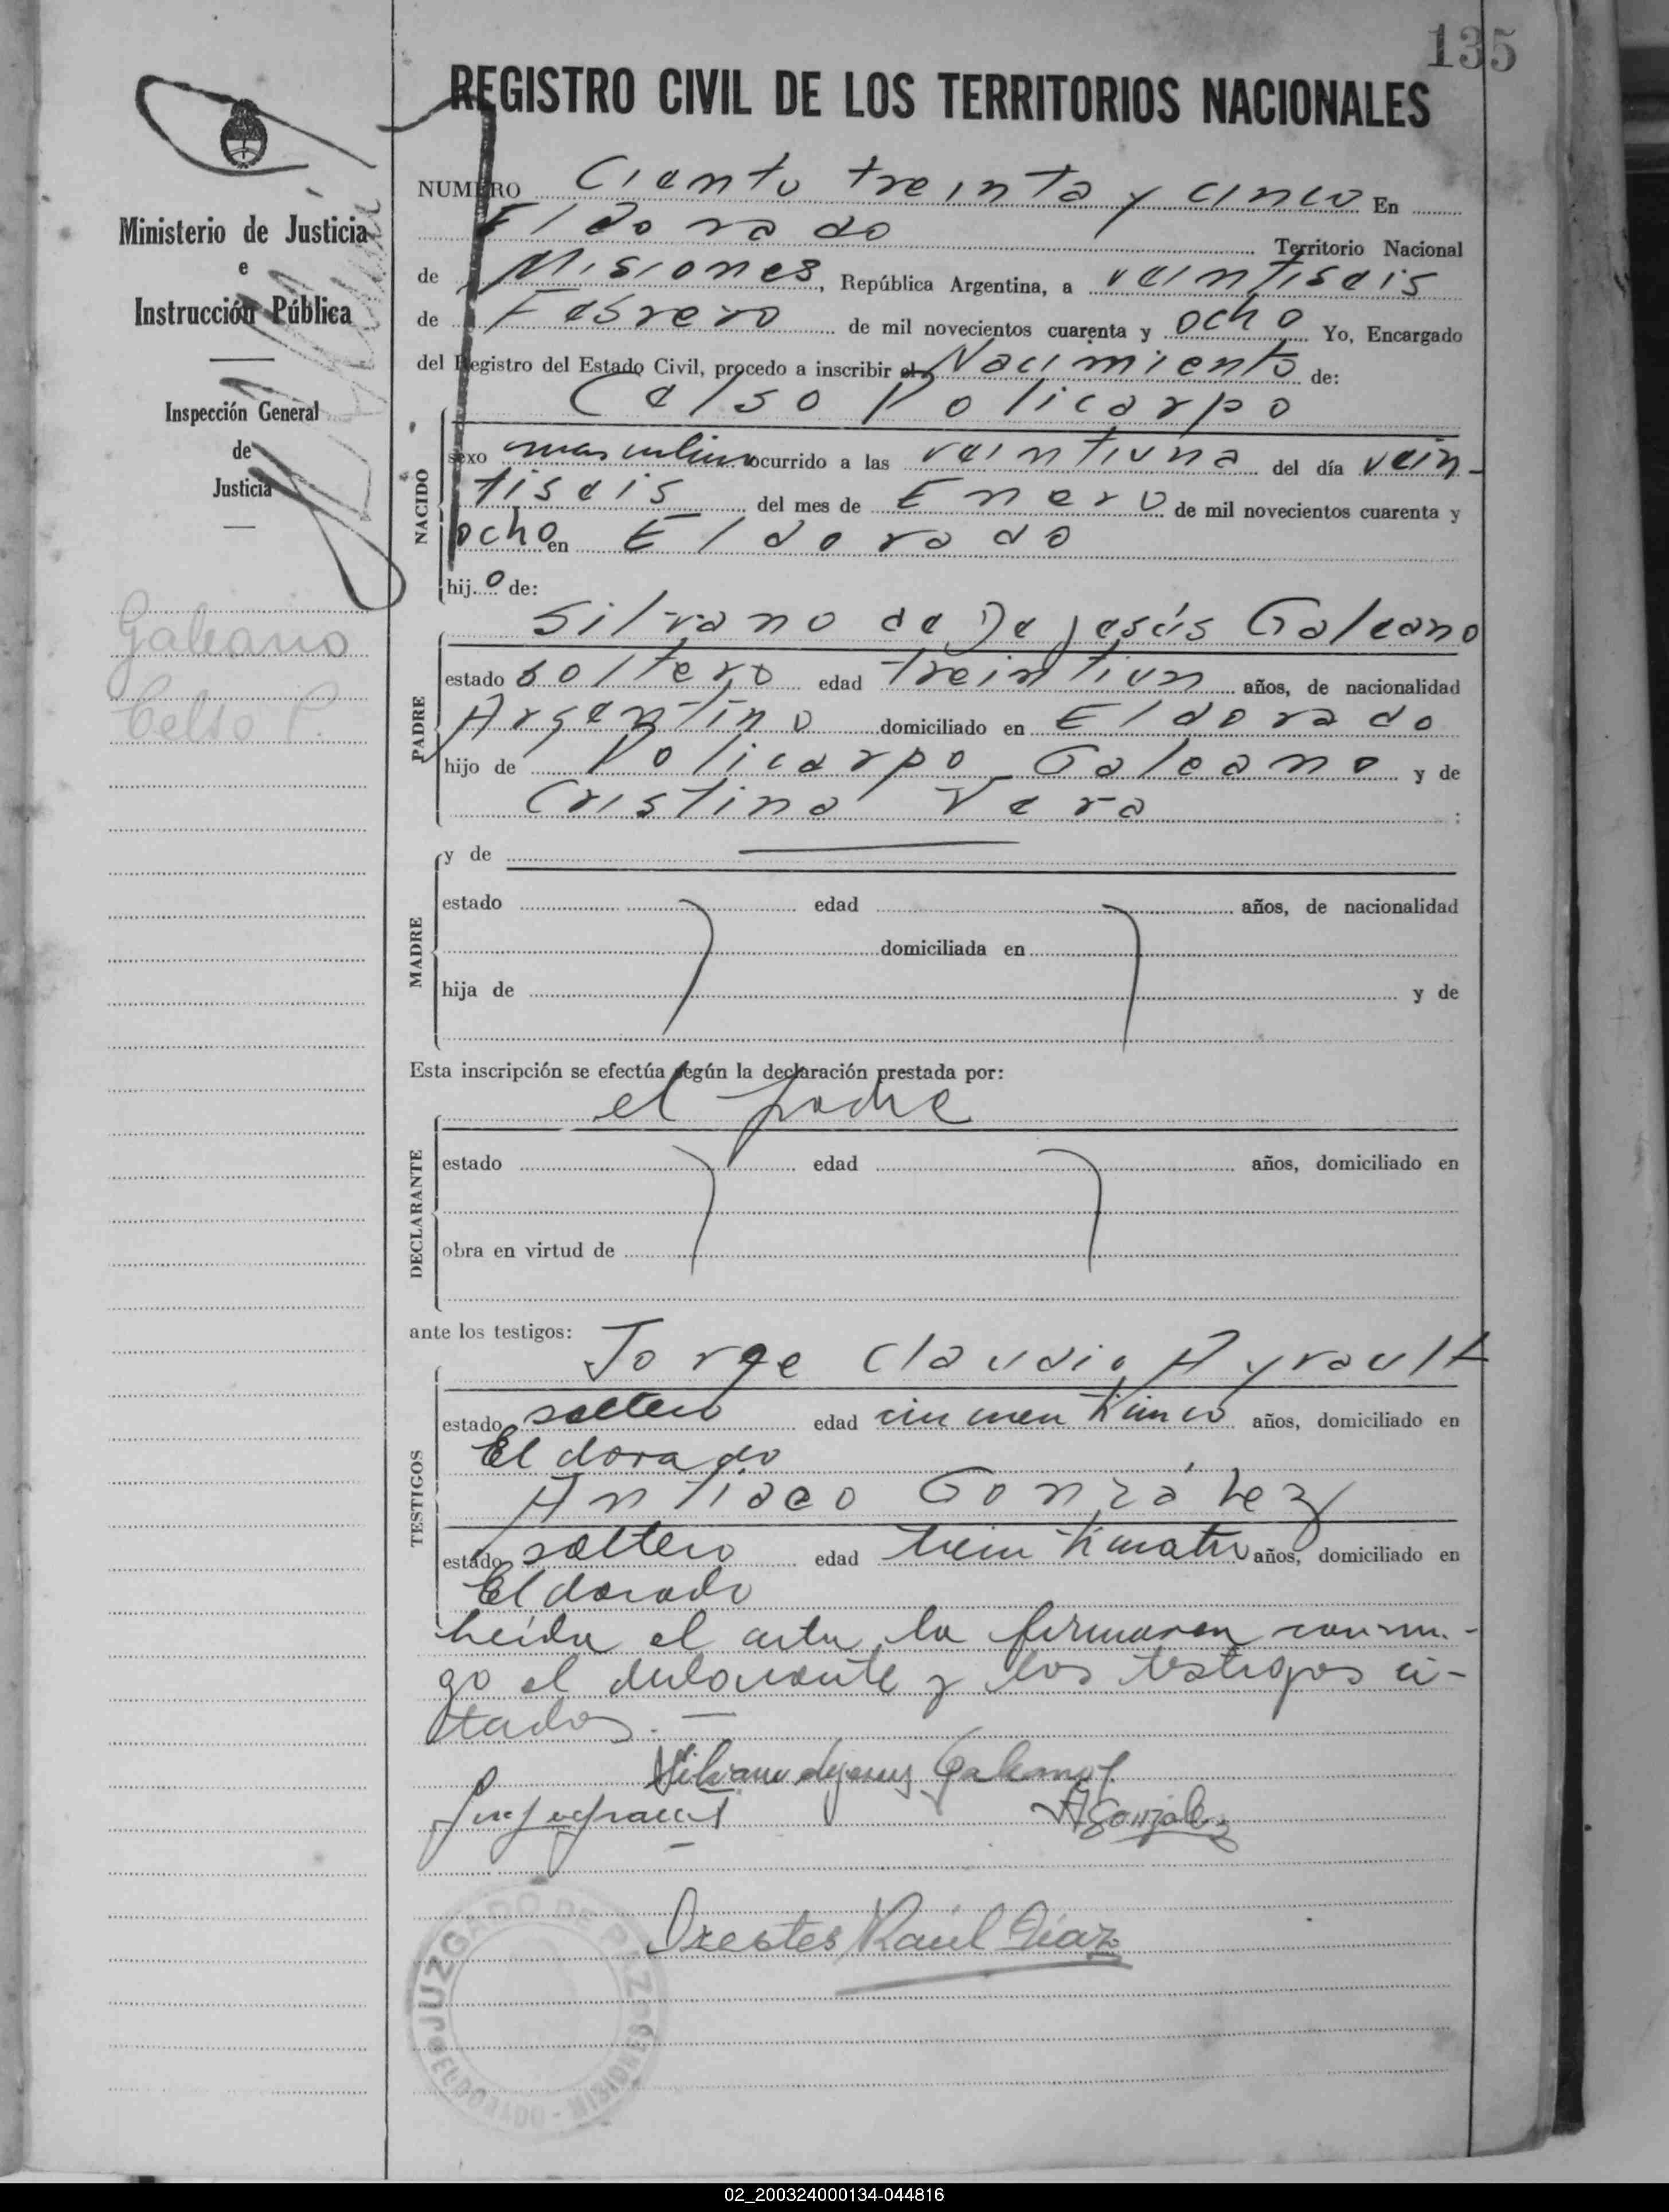 135
REGISTRO CIVIL DE LOS TERRITORIOS NACIONALES
Ministerio de Justicia
e
Instrucción Pública
Inspección General
de
Justicia
Galeano
Celso P.
NUMERO Ciento treinta y cinco En
Eldorado Territorio Nacional
de Misiones, República Argentina, a veintiseis
de Febrero de mil novecientos cuarenta y ocho Yo, Encargado
del Registro del Estado Civil, procedo a inscribir el Nacimiento de:
Celso Policarpo
NACIDO
sexo masculino ocurrido a las veintiuna del día vein-
tiseis del mes de Enero de mil novecientos cuarenta y
ocho en Eldorado
hijo de:
Silvano de De Jesús Galeano
PADRE
estado soltero edad treintiun años, de nacionalidad
Argentino domiciliado en Eldorado
hijo de Policarpo Galeano y de
Cristina Vera ;
MADRE
y de
estado edad años, de nacionalidad
domiciliada en
hija de y de
Esta inscripción se efectúa según la declaración prestada por:
el padre
DECLARANTE
estado edad años, domiciliado en
obra en virtud de
ante los testigos:
Jorge Claudio Ayrault
TESTIGOS
estado soltero edad cincuenticinco años, domiciliado en
Eldorado
González
estado soltero edad treinticuatro años, domiciliado en
Eldorado
Leída el acta, la firmaron conmi-
go el declarante y los testigos ci-
tados.-
Silvano dejesus Galeano
AGonzalez
Orestes Raúl Díaz
JUZGADO DE PAZ
ELDORADO - MISIONES
02_200324000134-044816